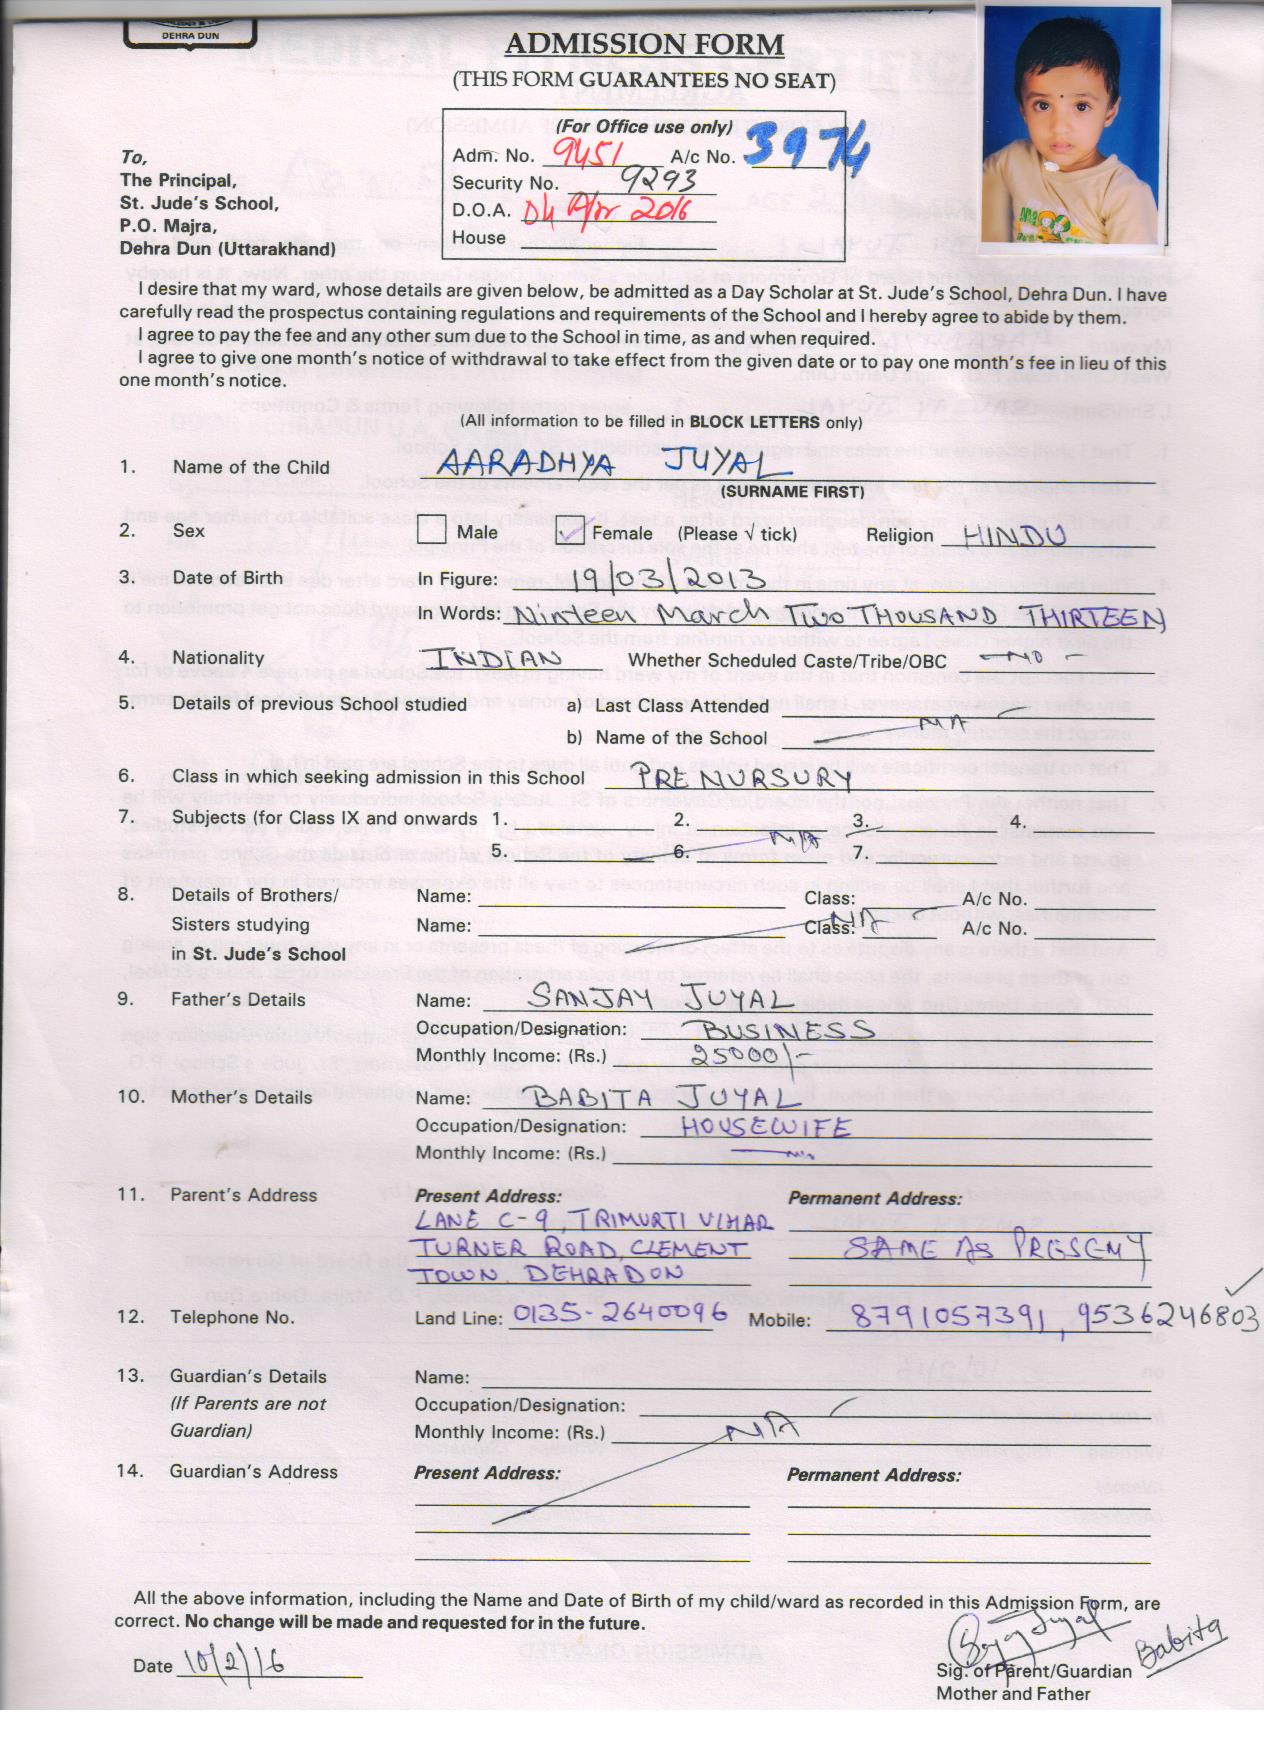 DEHRA DUN
ADMISSION FORM
(THIS FORM GUARANTEES NO SEAT)
(For Office use only)
Adm. No. 9451 A/c No. 3974
Security No. 9293
D.O.A. 04 Apr 2016
House
To,
The Principal,
St. Jude's School,
P.O. Majra,
Dehra Dun (Uttarakhand)
I desire that my ward, whose details are given below, be admitted as a Day Scholar at St. Jude's School, Dehra Dun. I have
carefully read the prospectus containing regulations and requirements of the School and I hereby agree to abide by them.
I agree to pay the fee and any other sum due to the School in time, as and when required.
I agree to give one month's notice of withdrawal to take effect from the given date or to pay one month's fee in lieu of this
one month's notice.
(All information to be filled in BLOCK LETTERS only)
1. Name of the Child AARADHYA JUYAL
(SURNAME FIRST)
2. Sex Male Female (Please √ tick) Religion HINDU
3. Date of Birth In Figure: 19/03/2013
In Words: Ninteen March TWO THOUSAND THIRTEEN
4. Nationality INDIAN Whether Scheduled Caste/Tribe/OBC NO
5. Details of previous School studied a) Last Class Attended
NA
b) Name of the School
6. Class in which seeking admission in this School PRE NURSURY
7. Subjects (for Class IX and onwards 1. 2. 3. 4.
5. 6. N/A 7.
8. Details of Brothers/ Name: Class: A/c No.
Sisters studying Name: Class: NA A/c No.
in St. Jude's School
9. Father's Details Name: SANJAY JUYAL
Occupation/Designation: BUSINESS
Monthly Income: (Rs.) 25000/-
10. Mother's Details Name: BABITA JUYAL
Occupation/Designation: HOUSEWIFE
Monthly Income: (Rs.)
11. Parent's Address Present Address: Permanent Address:
LANE C-9, TRIMURTI VIHAR
TURNER ROAD, CLEMENT SAME AS PRESENT
TOWN. DEHRADON
12. Telephone No. Land Line: 0135-2640096 Mobile: 8791057391, 9536246803
13. Guardian's Details Name:
(If Parents are not Occupation/Designation:
Guardian) Monthly Income: (Rs.) N/A
14. Guardian's Address Present Address: Permanent Address:
All the above information, including the Name and Date of Birth of my child/ward as recorded in this Admission Form, are
correct. No change will be made and requested for in the future.
Date 10/2/16 Juyal Babita
Sig. of Parent/Guardian
Mother and Father